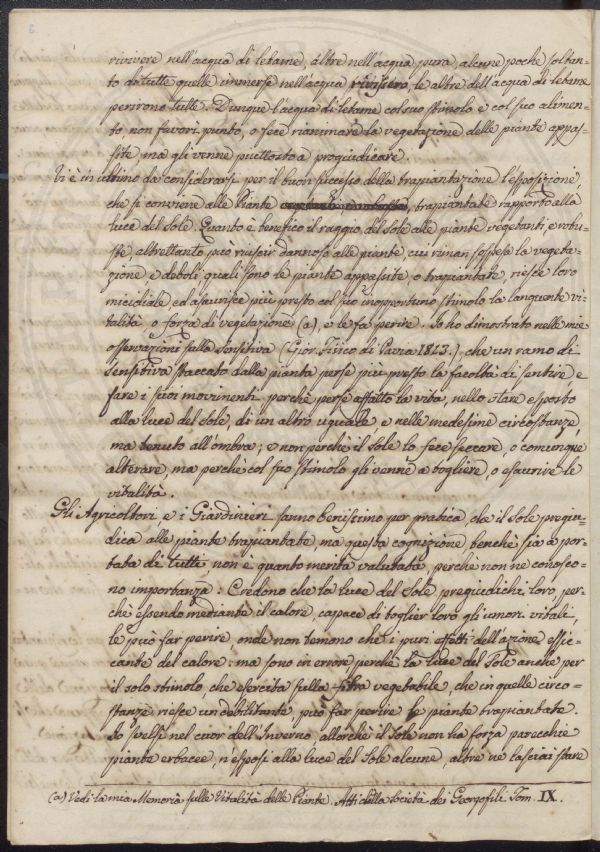 rivivere nell'acqua di letame, altre nell'acqua pura, alcune poche soltan-
to di tutte quelle immerse nell'acqua rivissero, le altre dell'acqua di letame
perirono tutte. Dunque l'acqua di letame col suo stimolo e col suo alimen-
to, non favorì punto, o fece rianimare la vegetazione delle piante appas-
site, ma gli venne piuttosto a progiudicare.
Vi è in ultimo da considerarsi per il buon successo della trapiantazione l'esposizione,
che si conviene alle Piante trapiantate rapporto alla
luce del Sole. Quanto è benefico il raggio del Sole alle piante vegetanti, e robu-
ste, altrettanto può riuscir dannoso alle piante, cui riman sospesa la vegeta-
zione e deboli quali sono le piante appassite, o trapiantate, riesce loro
micidiale ed esaurisce più presto col suo inopportuno stimolo la languente vi-
talità, o forza di vegetazione (a), e le fa perire. Io ho dimostrato nelle mie
osservazioni sulla Sensitiva (Gior. Fisico di Pavia 1813.), che un ramo di
Sensitiva staccato dalla pianta perse più presto la facoltà di sentire, e
fare i suoi movimenti, perchè perse affatto la vita, nello stare esposto
alla luce del Sole, di un altro uguale, e nelle medesime circostanze,
ma tenuto all'ombra; e non perchè il Sole lo fece seccare, o comunque
alterare, ma perchè col suo stimolo gli venne a togliere, o esaurire le
vitalità.
Gli Agricoltori e i Giardinieri sanno benissimo per pratica, che il Sole pregiu-
dica alle piante trapiantate, ma questa cognizione, benchè sia a por-
tata di tutti, non è quanto merita valutata, perchè non ne conosco-
no importanza: Credono che la luce del Sole pregiudichi loro, per-
chè essendo mediante il calore, capace di toglier loro gli umori vitali,
le può far perire, onde non temono che i puri effetti dell'azione essic-
cante del calore: ma sono in errore perchè la luce del Sole anche per
il solo stimolo, che esercita sulla fibra vegetabile, che in quelle circo-
stanze riesce un debilitante, può far perire le piante trapiantate.
Io svelsi nel cuor dell'Inverno allorchè il Sole non ha forza parecchie
piante erbacee, n'esposi alla luce del Sole alcune, altre ne lasciai stare
(a) Vedi la mia Memoria sulle Vitalità delle Piante. Atti della Società dei Georgofili Tom. IX.